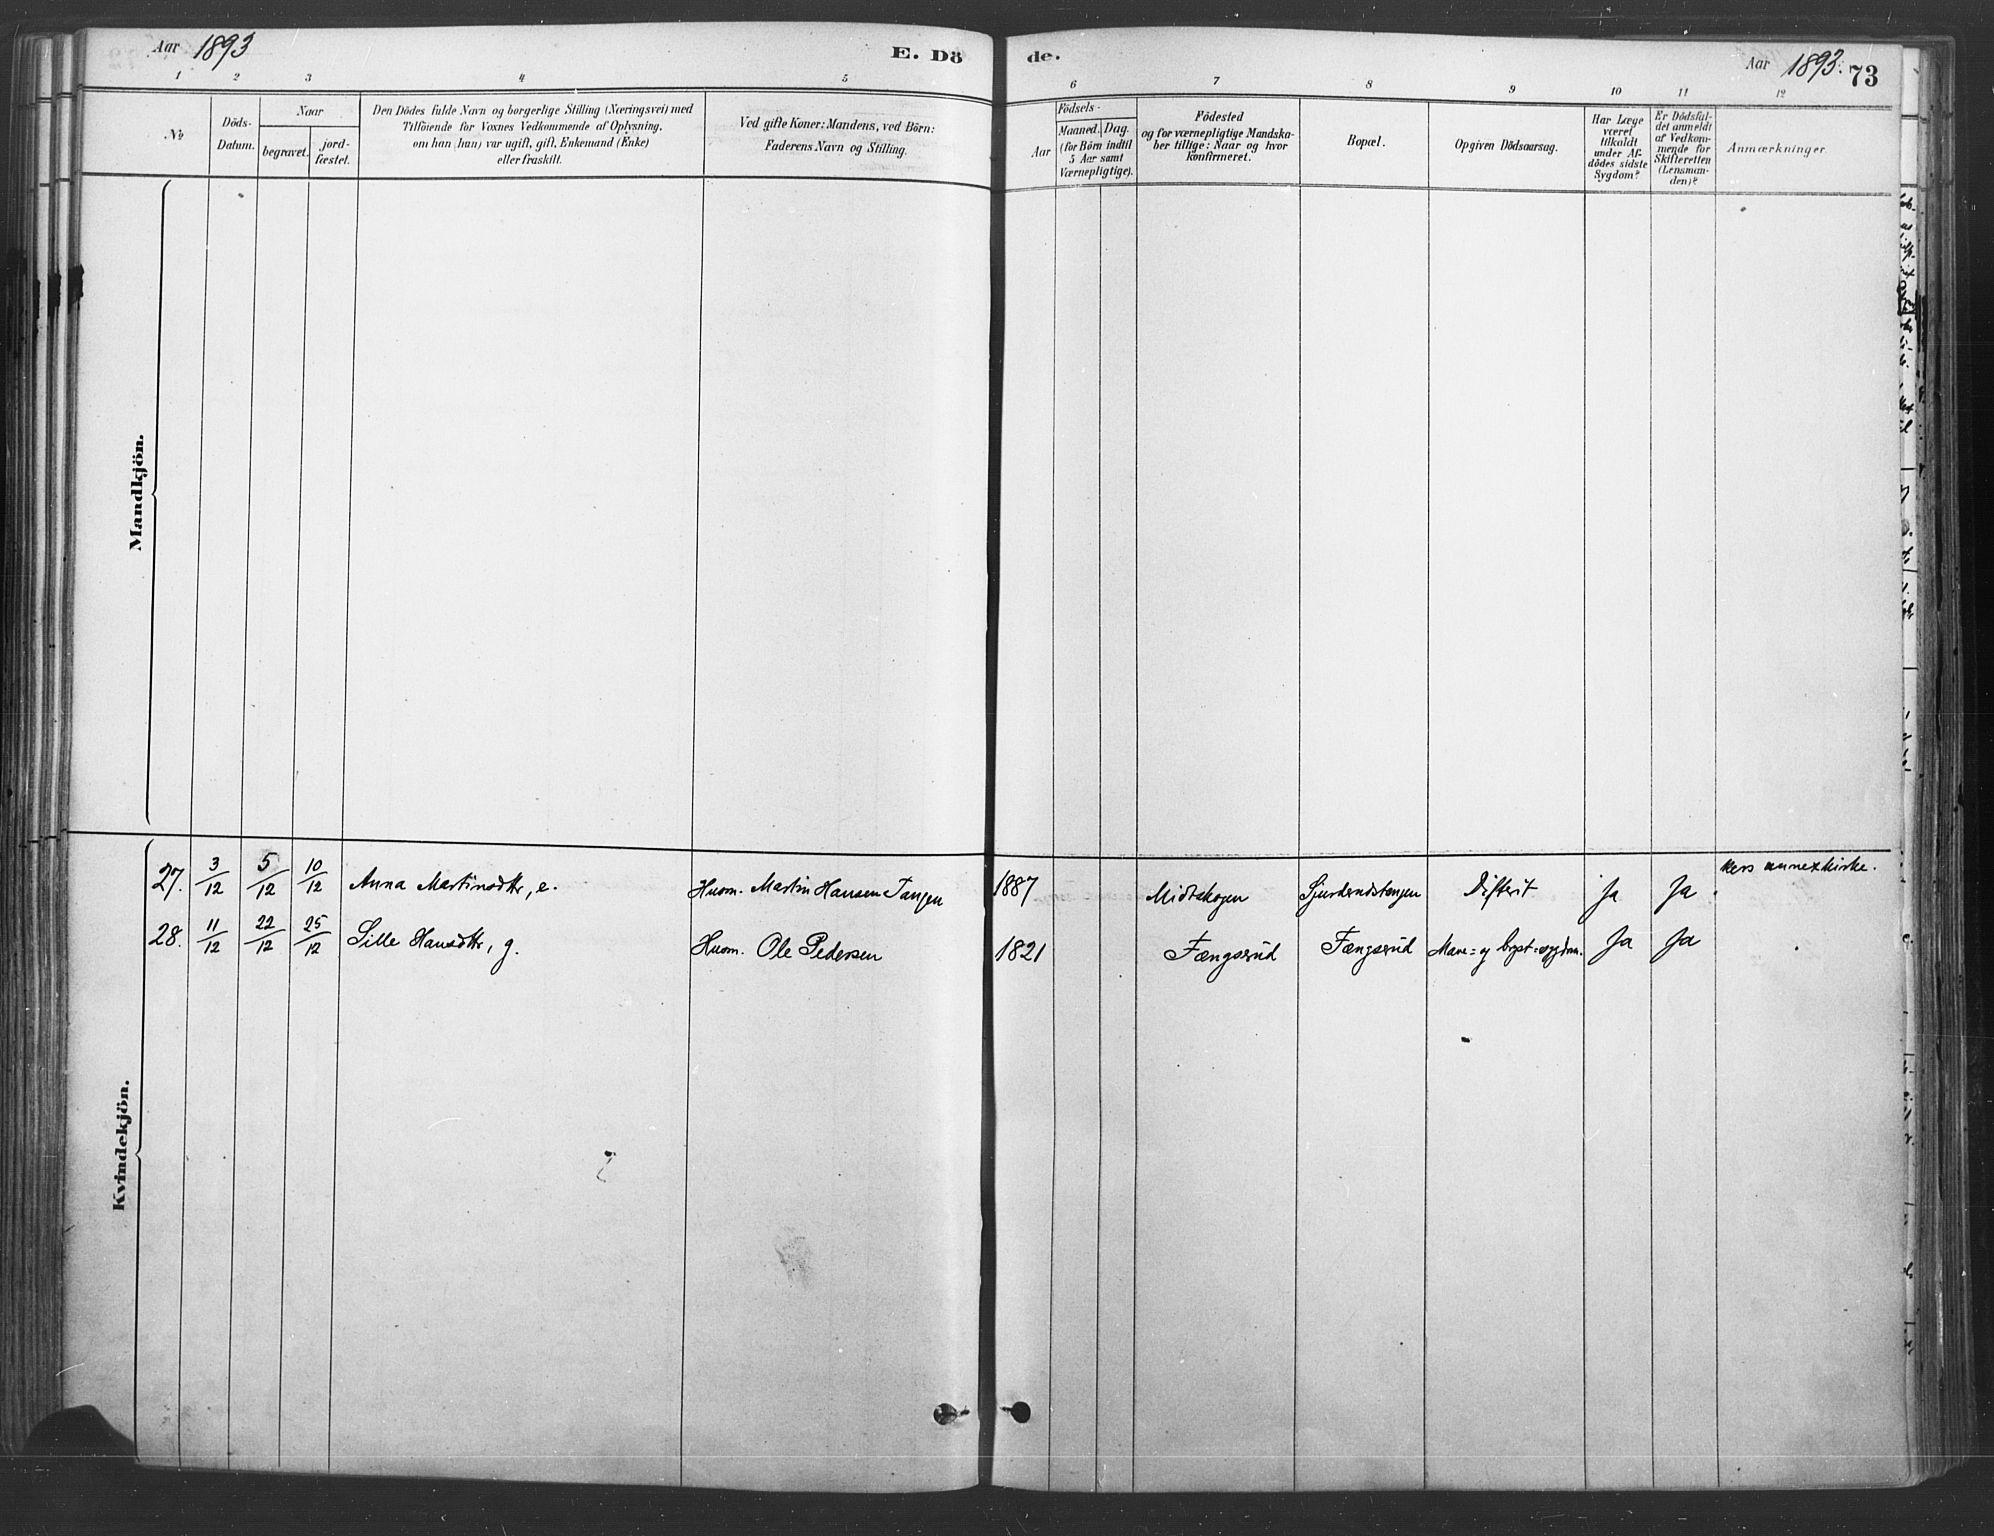 Aar 1893
E. Dö
de.
Aar 1893.
73
1 2 3 4 5 6 7 8 9 10 11 12
No
Döds-
Datum.
Naar
begravet.
jord-
fæstet.
Den Dödes fulde Navn og borgerlige Stilling (Næringsvei) med
Tilföiende for Voxnes Vedkommende af Oplysning,
om han (hun) var ugift, gift, Enkemand (Enke)
eller fraskilt.
Ved gifte Koner: Mandens, ved Börn:
Faderens Navn og Stilling.
Födsels-
Aar
Maaned. Dag.
(for Börn indtil
5 Aar samt
Værnepligtige).
Födested
og for værnepligtige Mandska-
ber tillige: Naar og hvor
konfirmeret.
Bopæl.
Opgiven Dödsaarsag.
Har Læge
været
tilkaldt
under Af-
dödes sidste
Sygdom?
Er Dödsfal-
det anmeldt
af Vedkom-
mende for
Skifteretten
(Lensman-
den)?
Anmærkninger.
Mandkjön.
Kvindekjön.
27. 3/12 5/12 10/12 Anna Martinsdtr, e. Husm. Martin Hansen Tangen 1887 Midtskogen Difterit Ja Ja annexkirke.
28. 11/12 22/12 25/12 Sille Hansdtr, g. Husm. Ole Pedersen 1821 Fængsrud Fængsrud Mave= og bryst=sygdom. Ja Ja